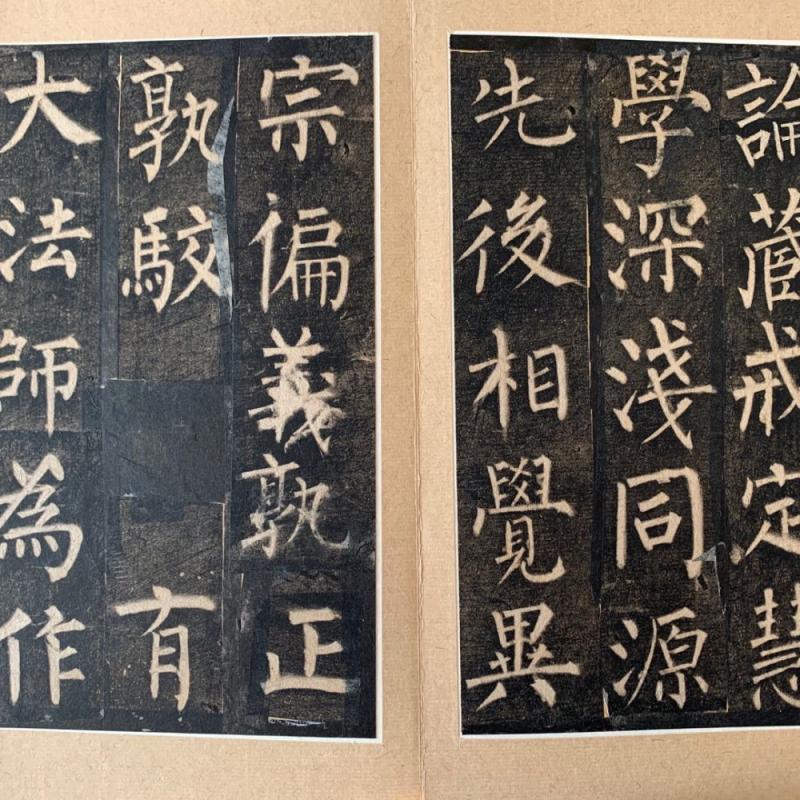 論藏戒定慧
學深淺同源
先後相覺異
宗偏義孰正
孰駮有
大法師為作